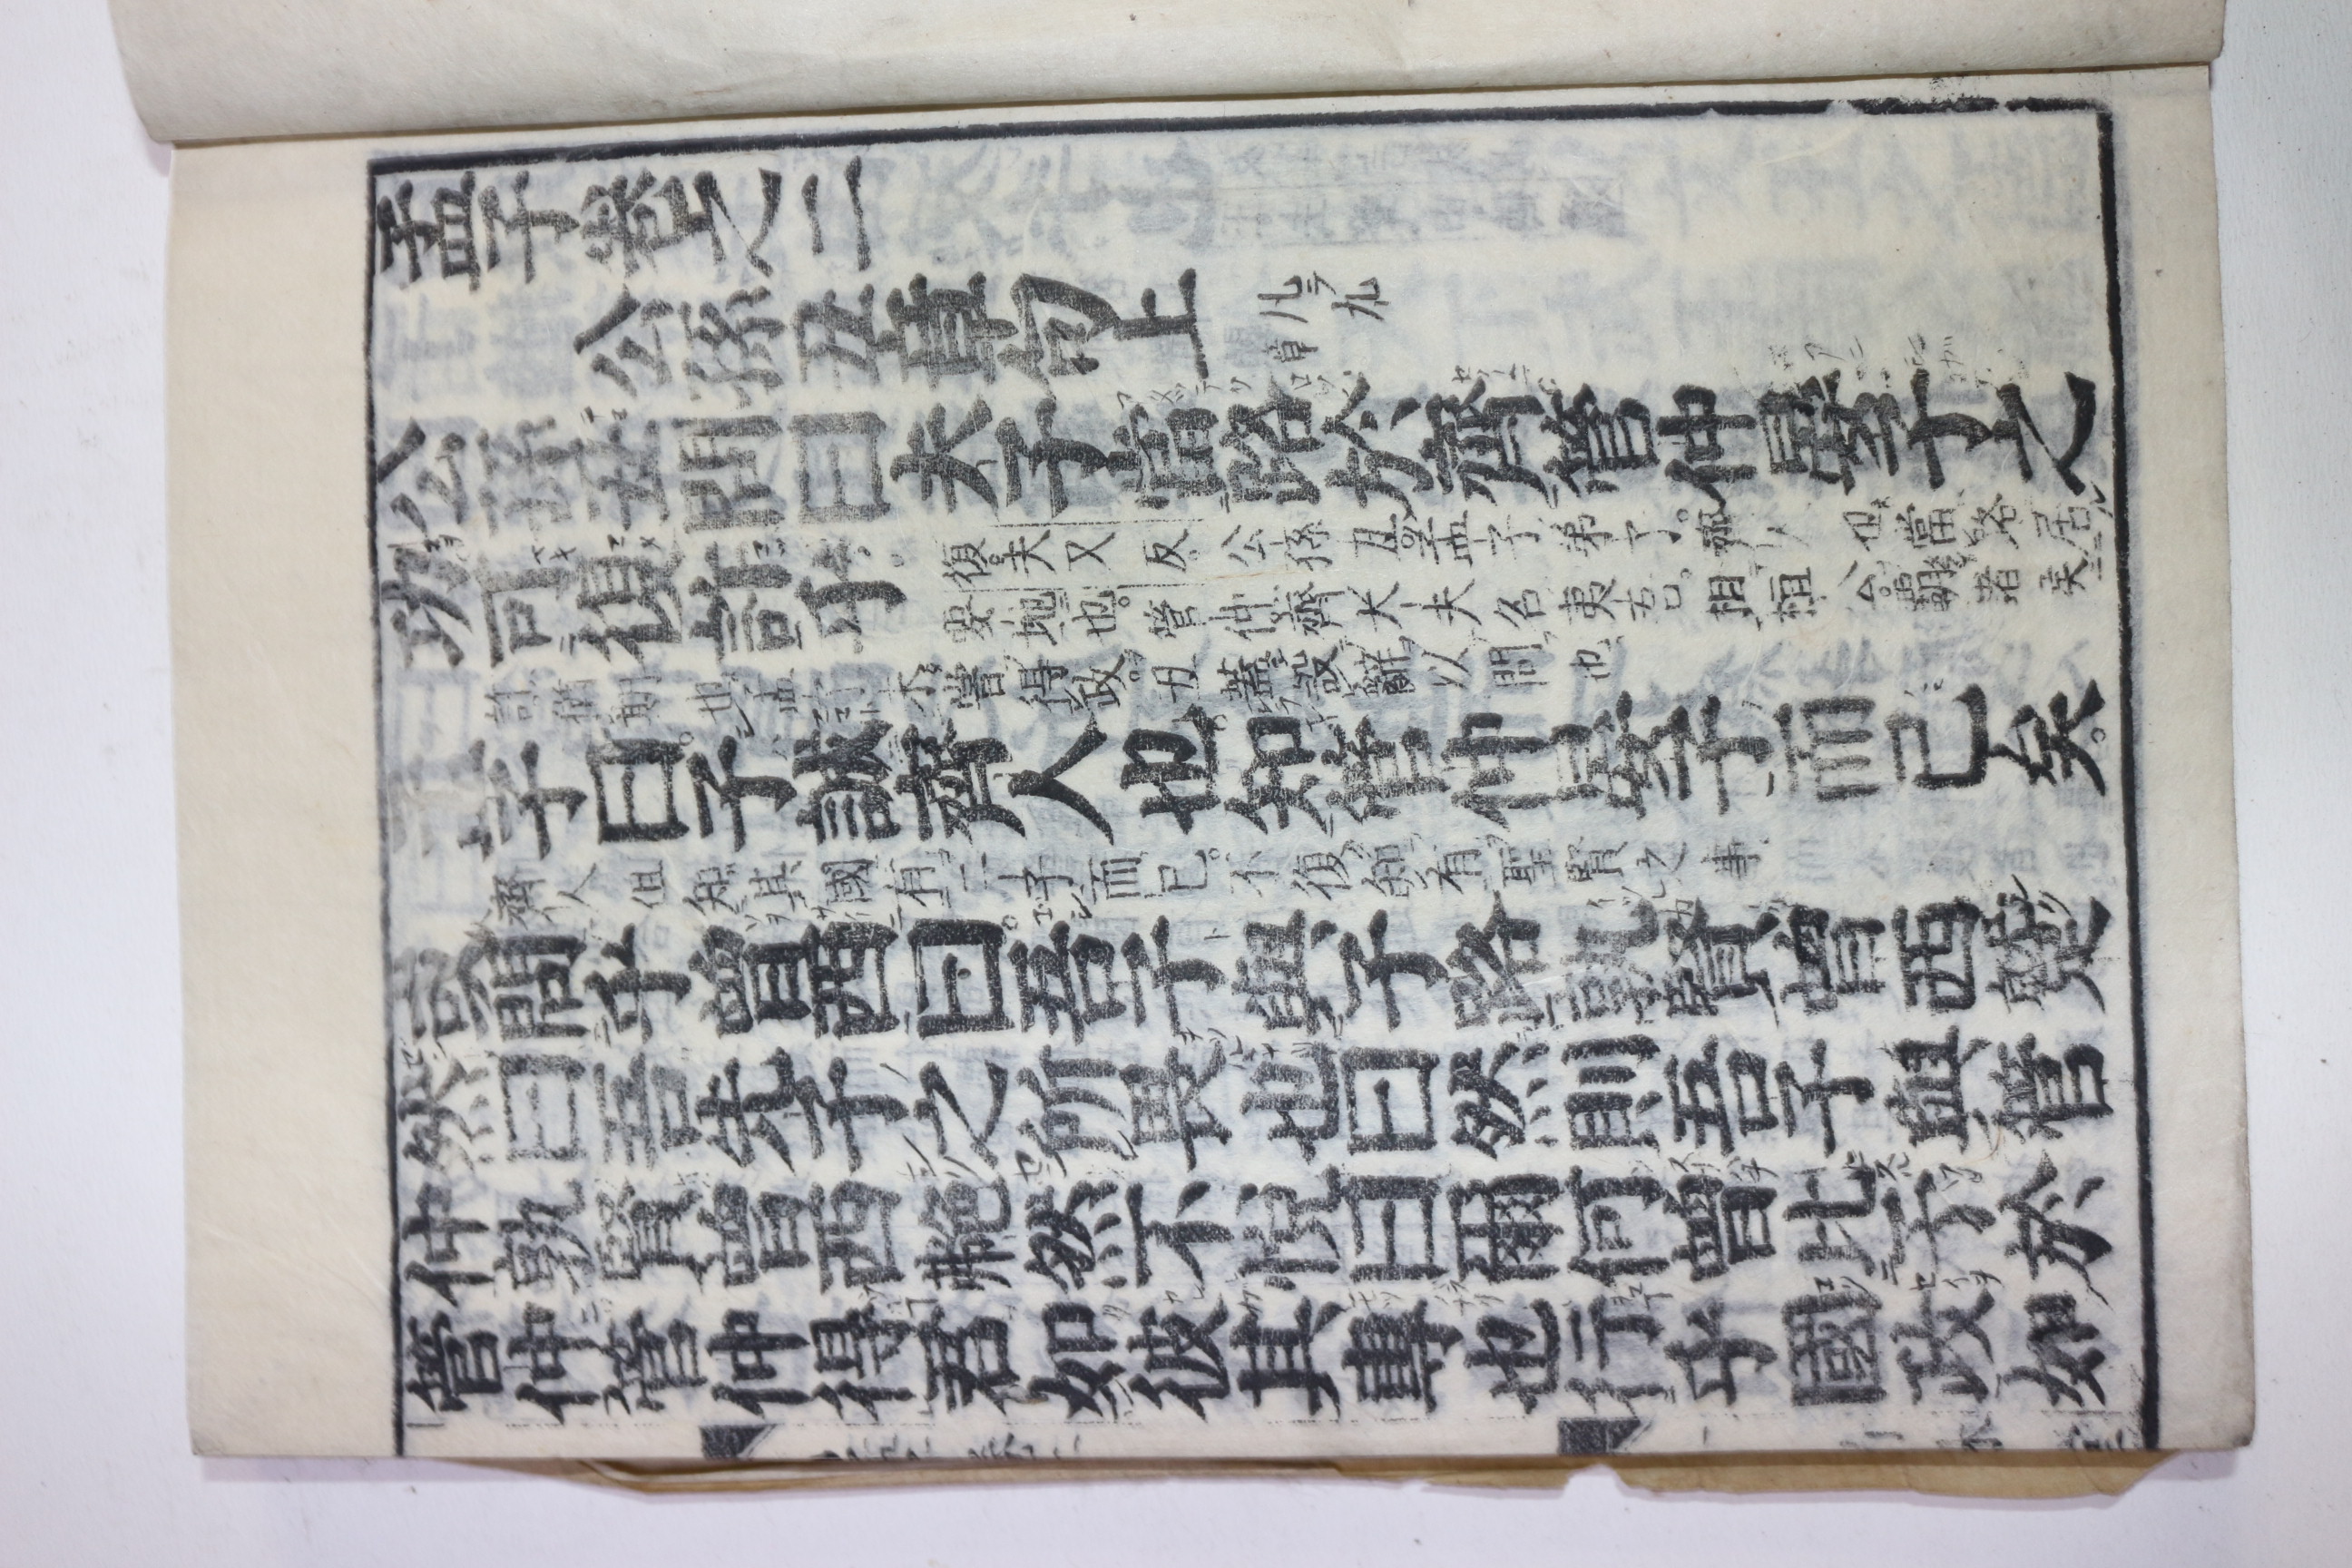 孟子卷之二
公孫丑章句上 凡九章
公孫丑問曰夫子當路於齊管仲晏子之
功可復許乎 復夫又反公孫丑孟子弟子齊人也當路居
要地也管仲齊大夫名夷吾相桓公霸諸侯
許猶期也孟子未嘗得政丑蓋設辭以問也
孟子曰子誠齊人也知管仲晏子而已矣
齊人但知其國有二子而已不復知有聖賢之事
或問乎曾西曰吾子與子路孰賢曾西蹵
然曰吾先子之所畏也曰然則吾子與管
仲孰賢曾西艴然不悅曰爾何曾比予於
管仲管仲得君如彼其專也行乎國政如